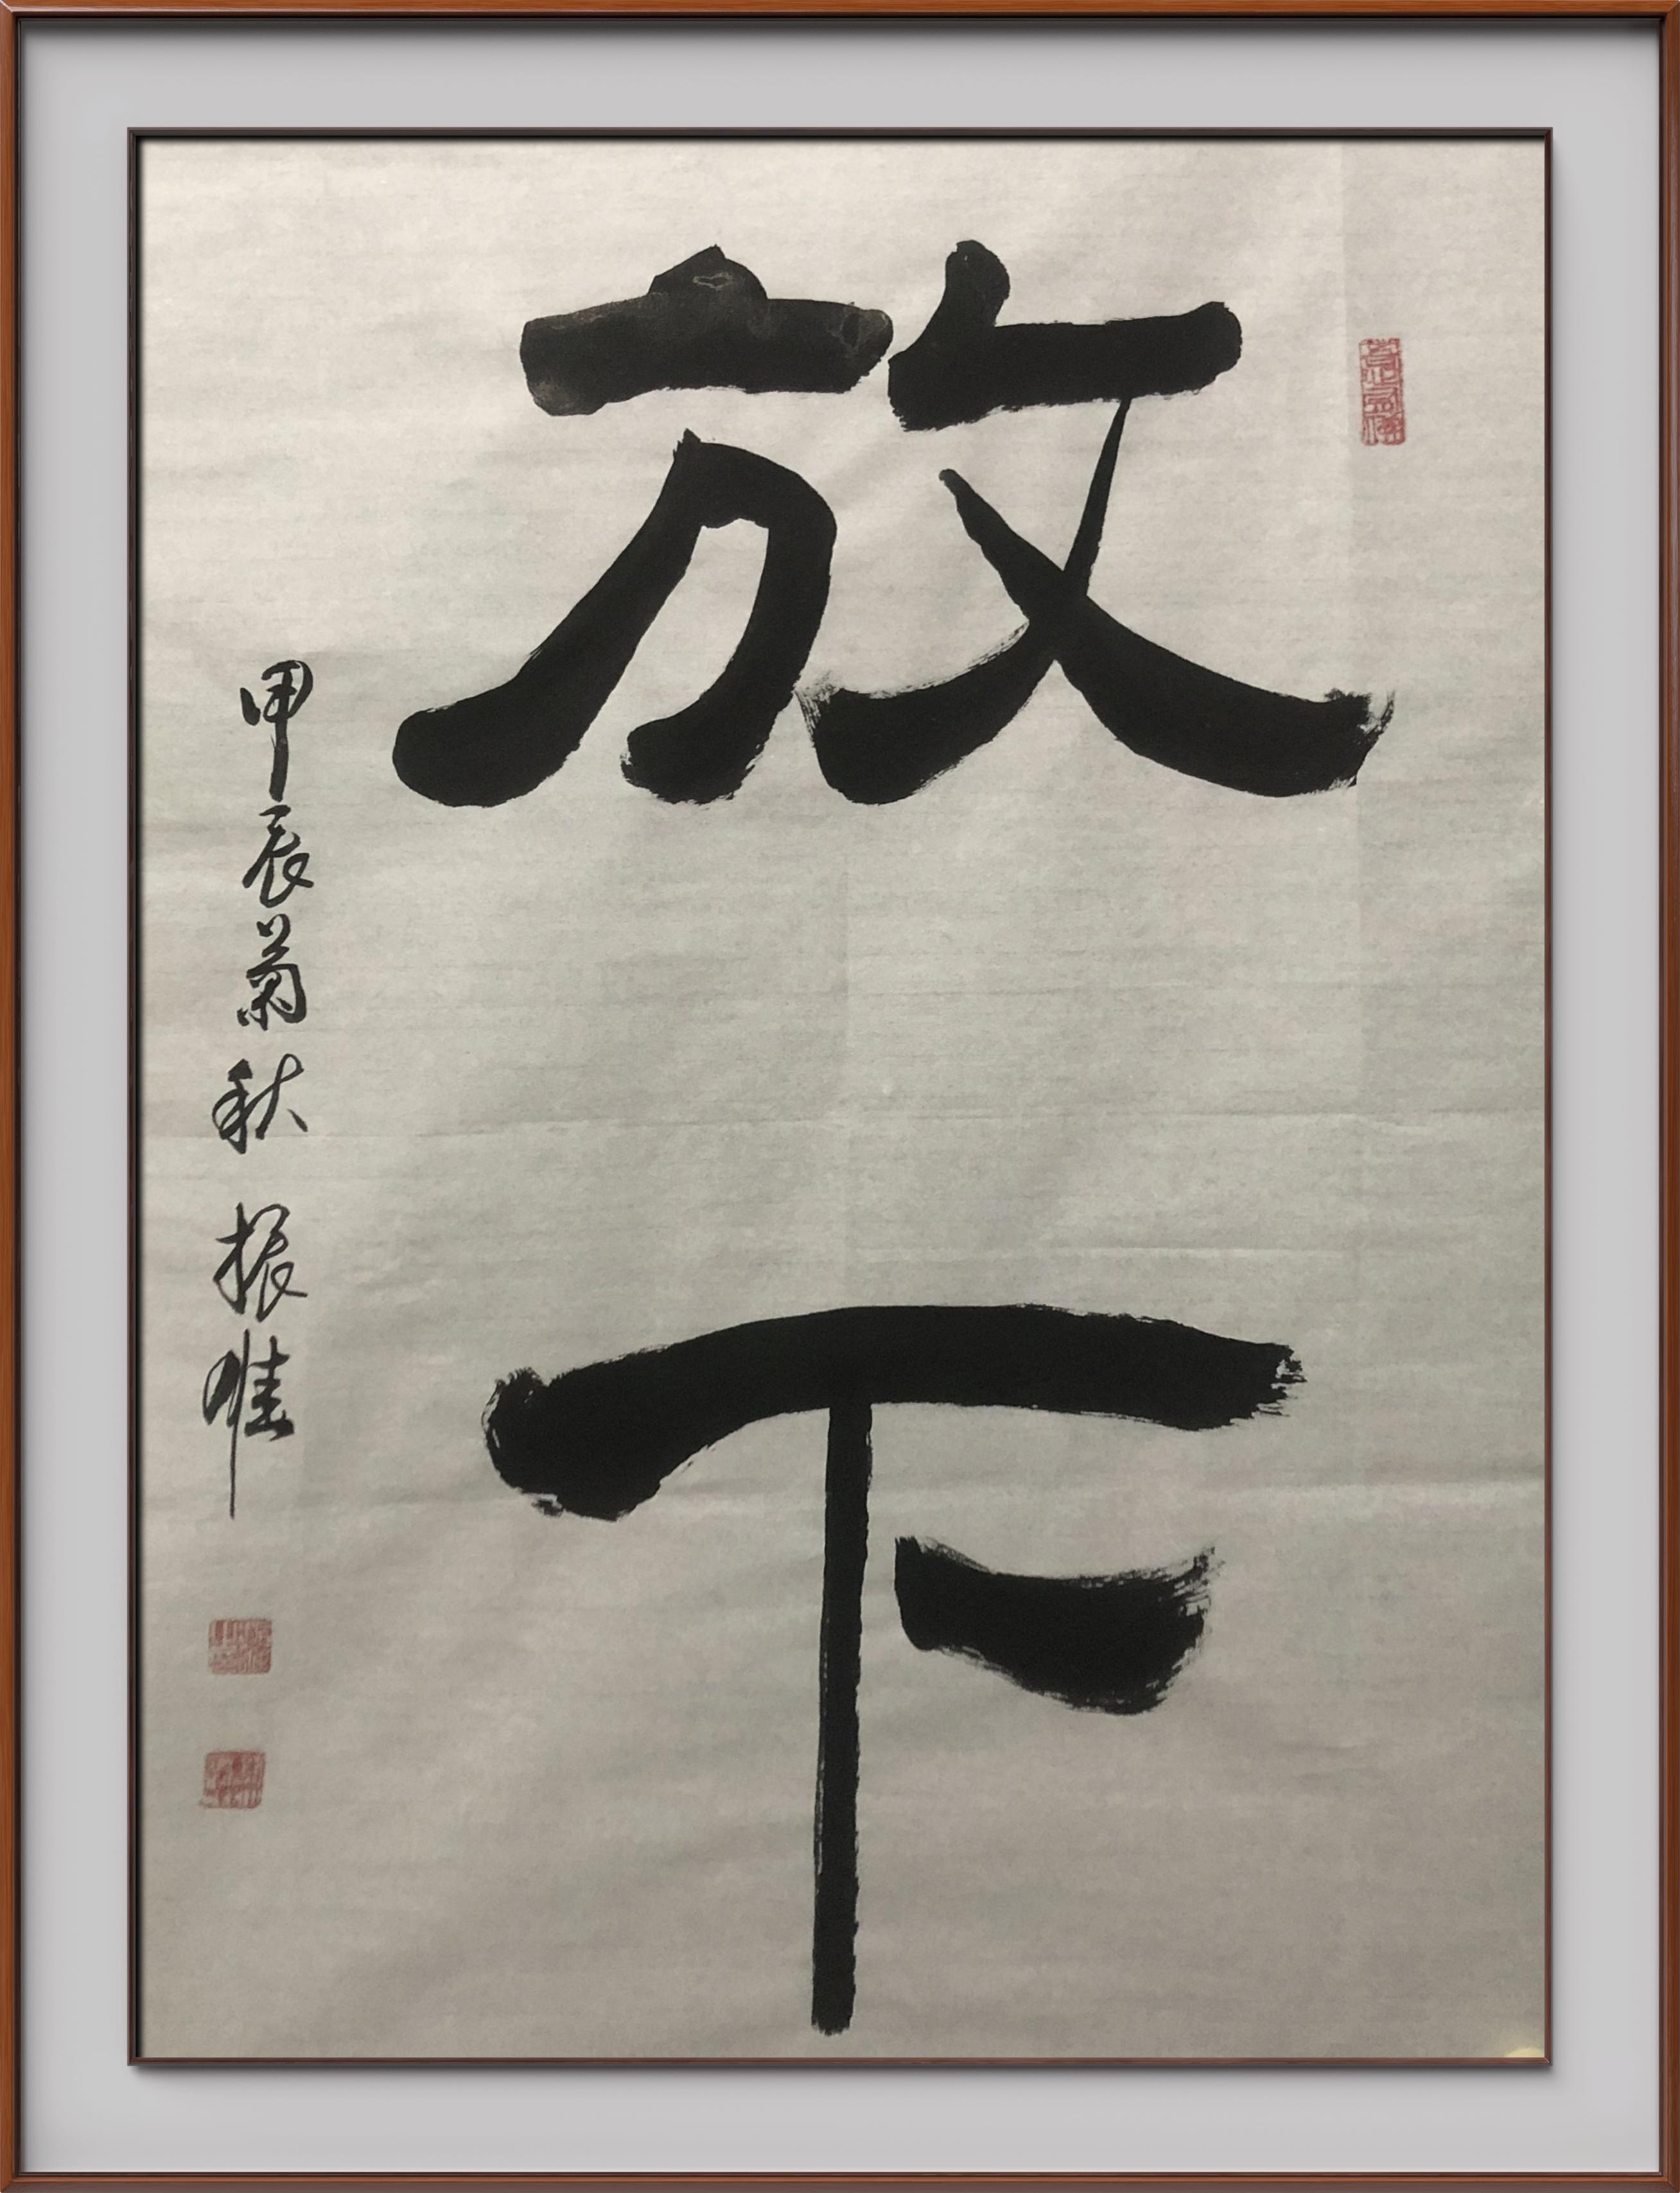 放下
甲辰菊秋 振唯